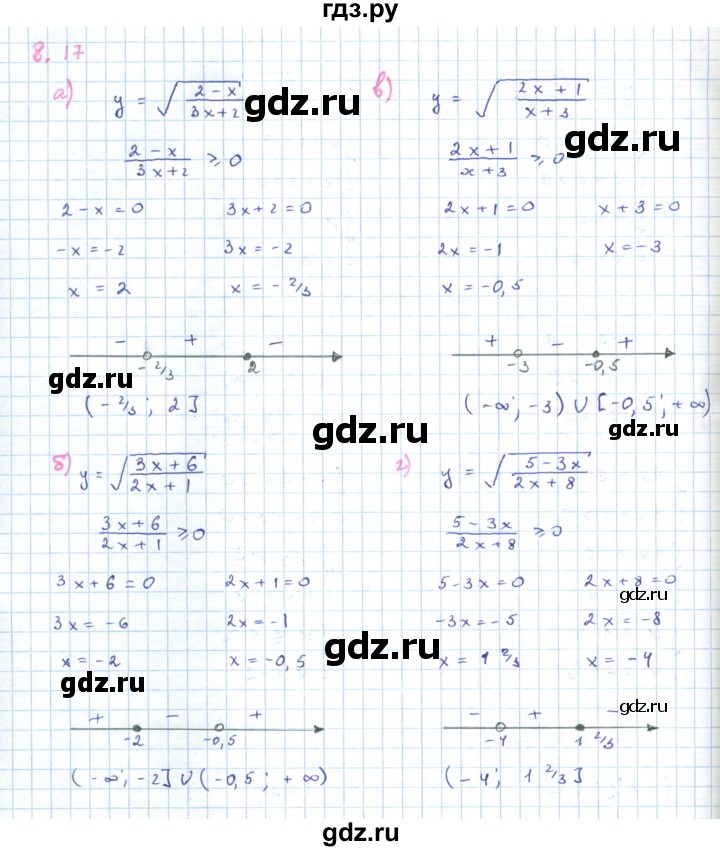 гдз.ру
8.17
а) y = √((2-x)/(3x+2))
(2-x)/(3x+2) ≥ 0
2-x=0 3x+2=0
-x=-2 3x=-2
x = 2 x = -2/3
- + -
-2/3 2
(-2/3; 2]
б) y = √((3x+6)/(2x+1))
(3x+6)/(2x+1) ≥ 0
3x+6=0 2x+1=0
3x=-6 2x=-1
x=-2 x=-0,5
+ - +
-2 -0,5
(-∞; -2] ∪ (-0,5; +∞)
в) y = √((2x+1)/(x+3))
(2x+1)/(x+3) ≥ 0
2x+1=0 x+3=0
2x=-1 x=-3
x=-0,5
+ - +
-3 -0,5
(-∞; -3) ∪ [-0,5; +∞)
г) y = √((5-3x)/(2x+8))
(5-3x)/(2x+8) ≥ 0
5-3x=0 2x+8=0
-3x=-5 2x=-8
x = 1 2/3 x = -4
- + -
-4 1 2/3
(-4; 1 2/3]
gdz.ru
gdz.ru
gdz.ru
gdz.ru
gdz.ru
gdz.ru
gdz.ru
gdz.ru
gdz.ru
gdz.ru
gdz.ru
gdz.ru